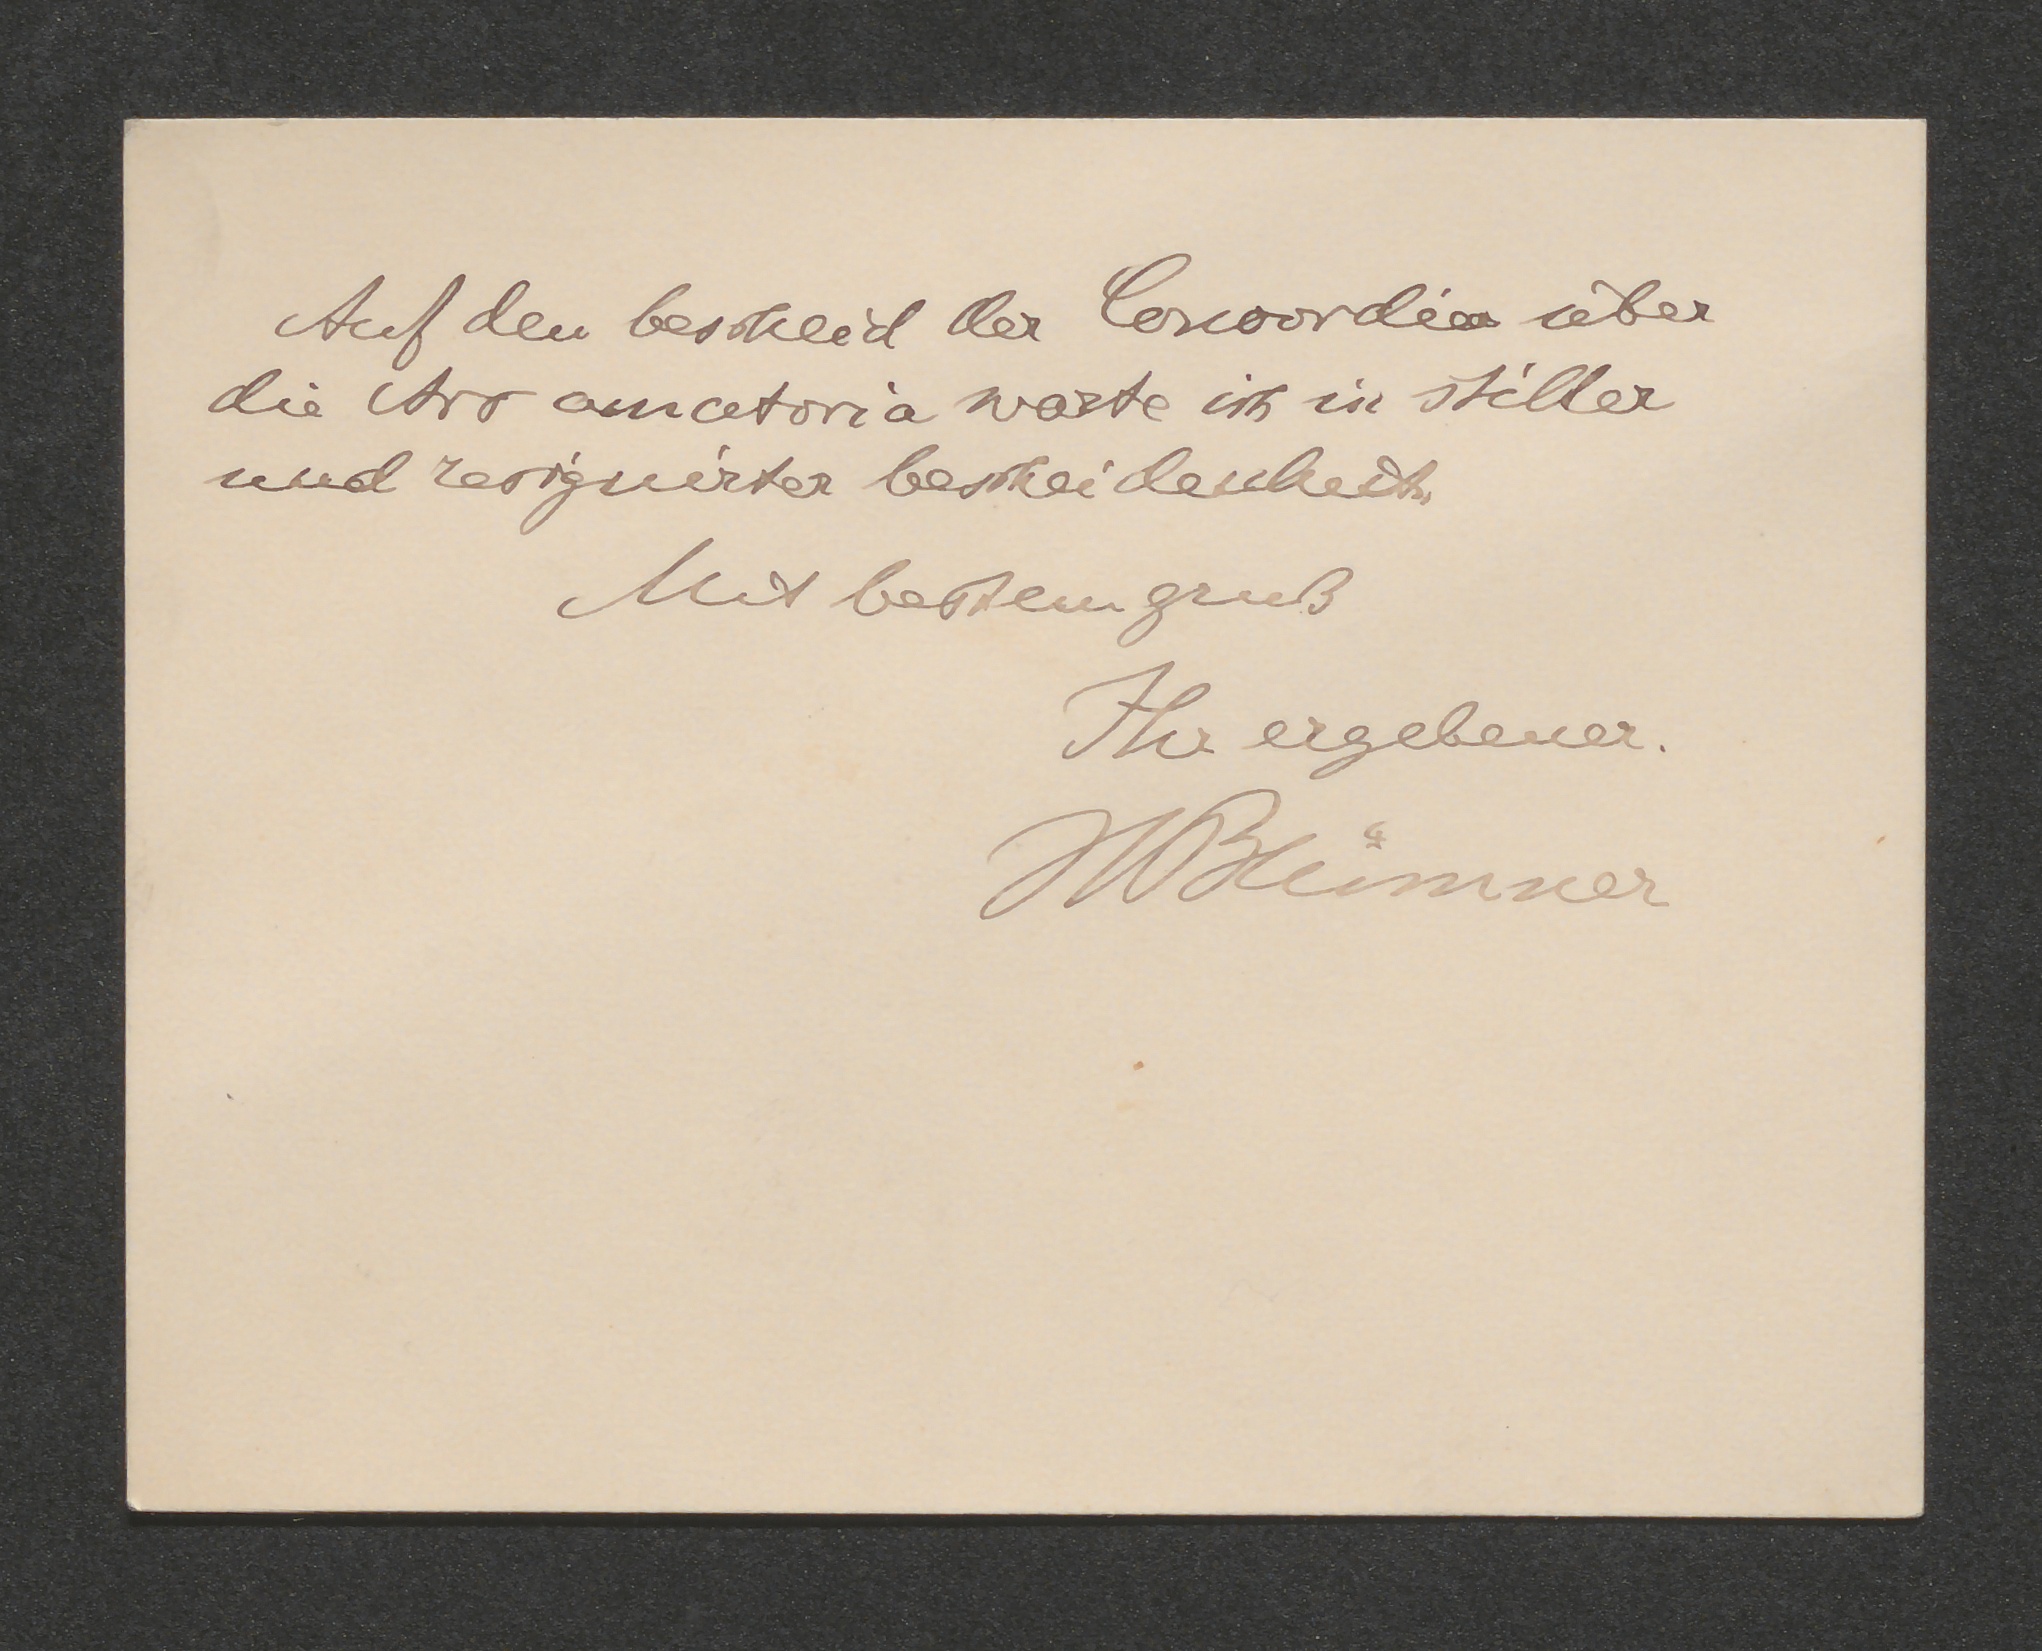 Auf den bescheid der Concordia über
die Ars amatoria warte ich in stiller
und resignirter bescheidenheit.
Mit bestem gruß
Ihr ergebener.
HBlümner